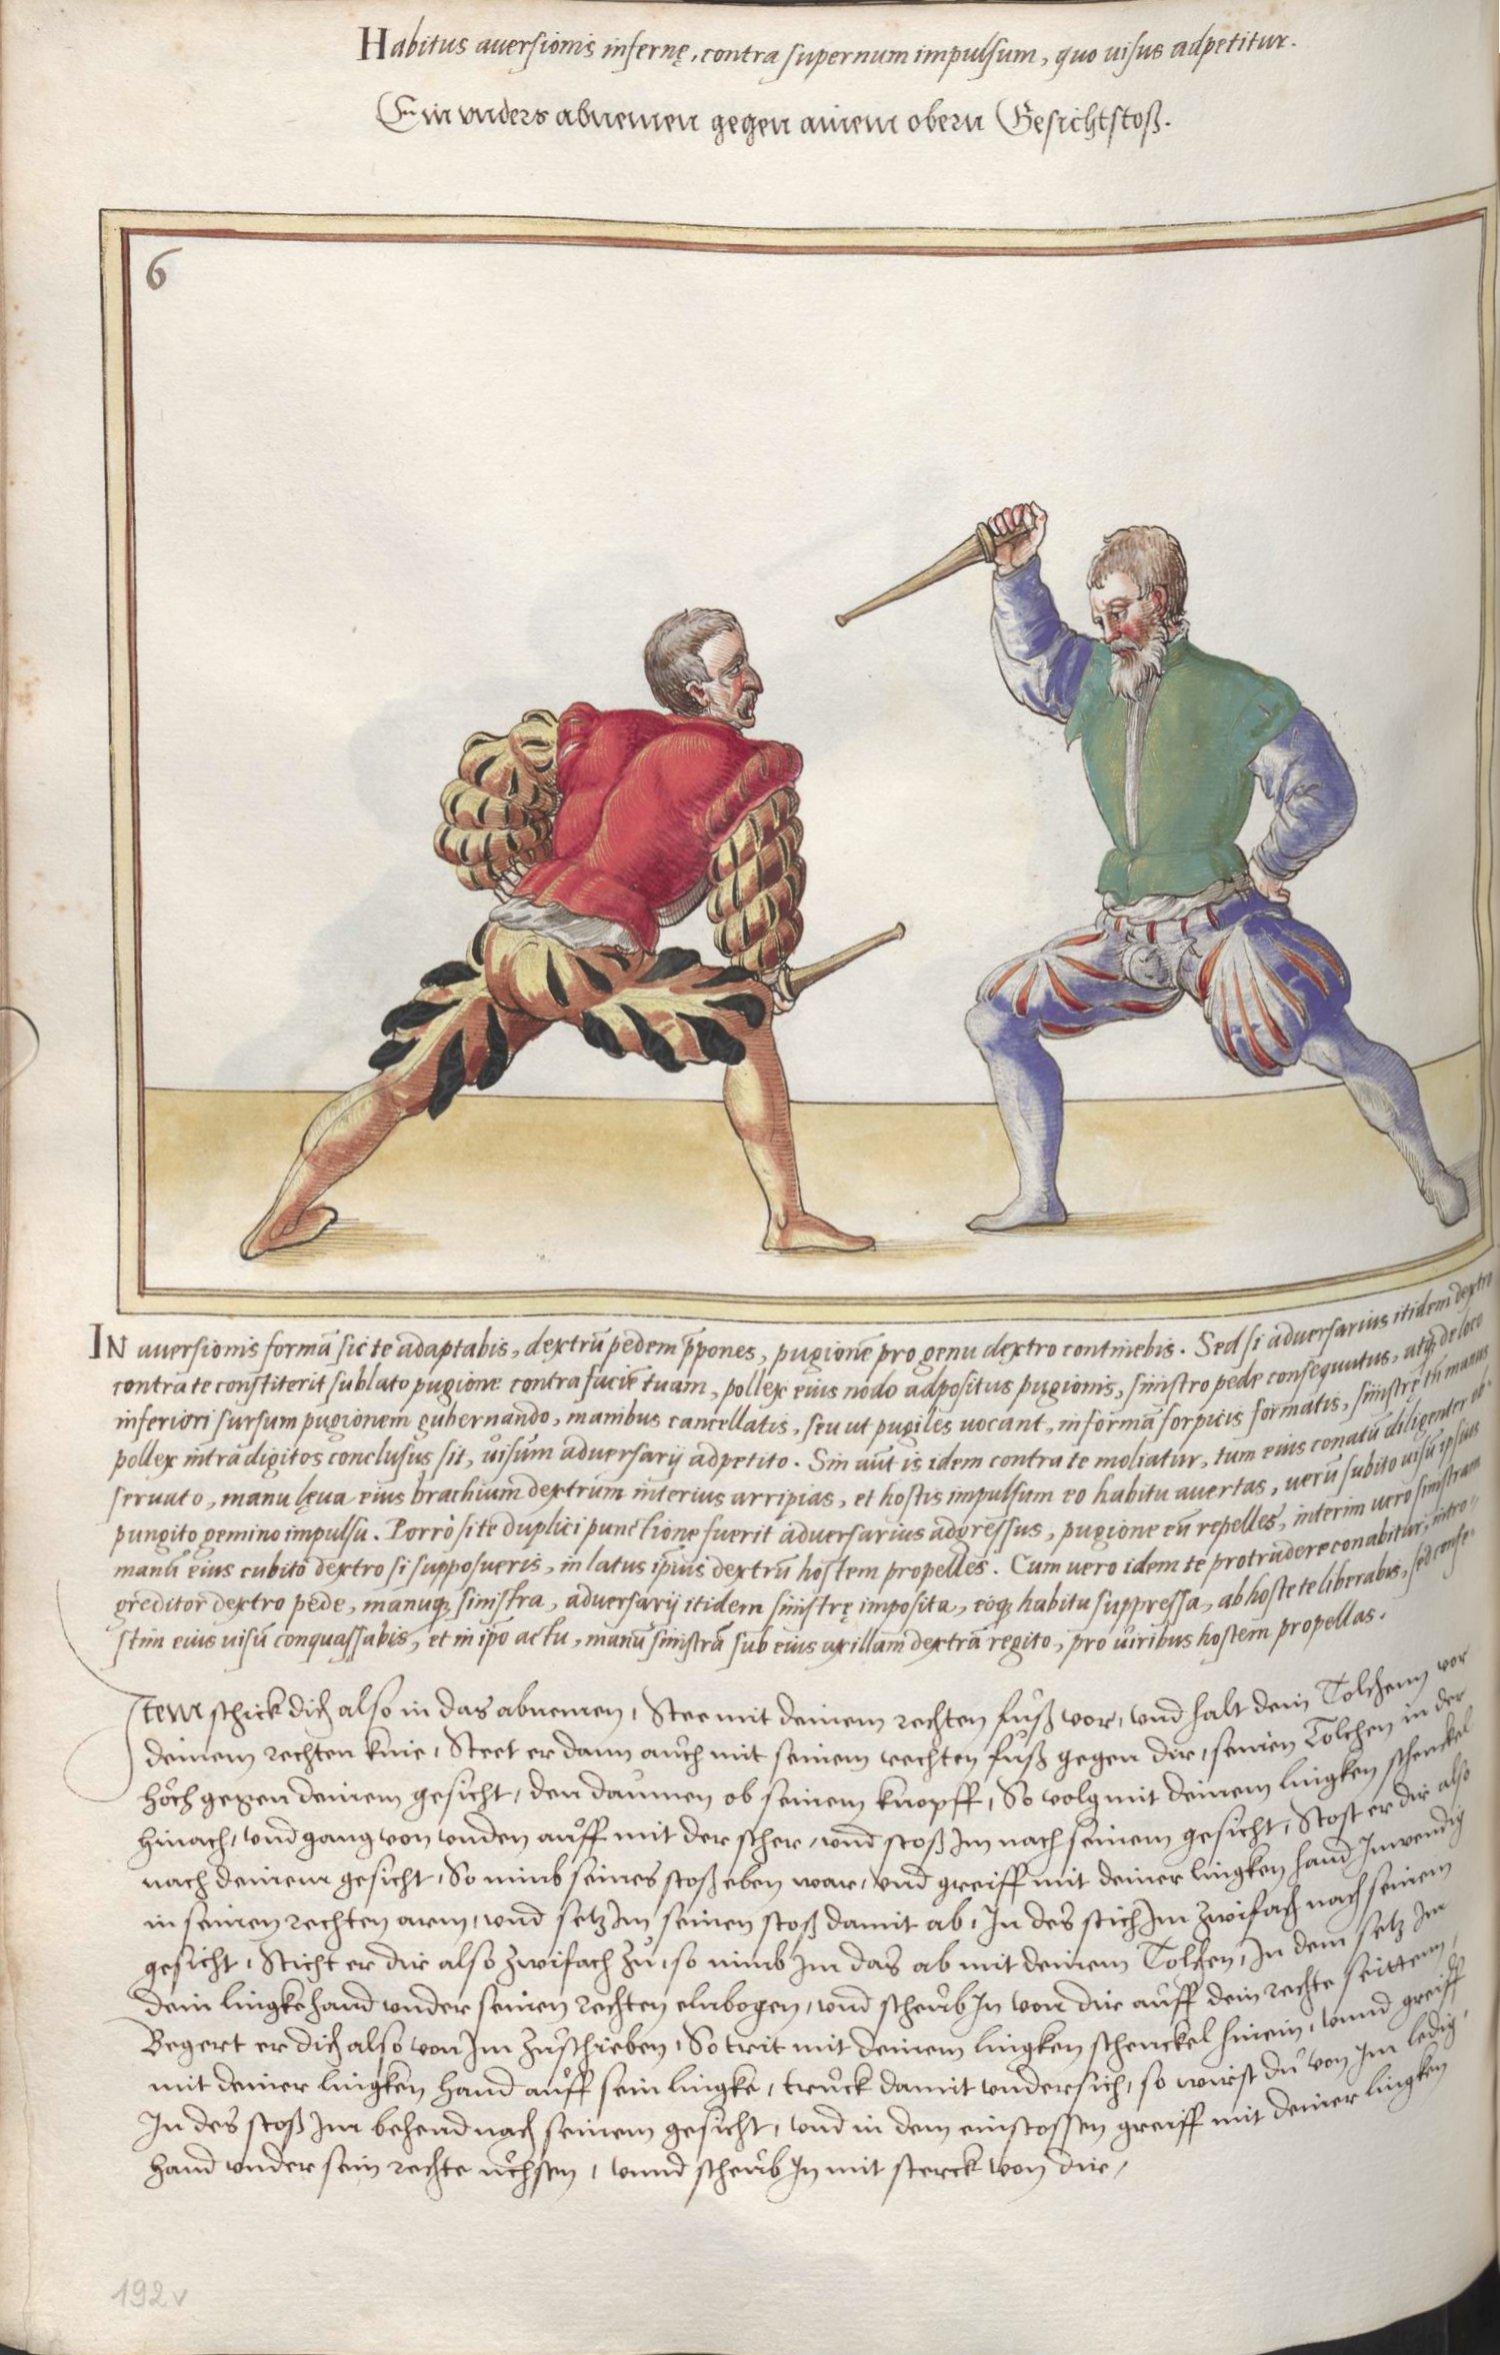 Habitus auersionis infernę, contra supernum impulsum, quo uisus adpetitur.
Ein vnders abnemen gegen ainem obern Gesichtstoß.
6
IN auersionis formā sic te adaptabis, dextrū pedem p̄pones, pugionē pro genu dextro continebis. Sed si aduersarius itidem dextro
contra te constiterit sublato pugione contra faciē tuam, pollex eius nodo adpositus pugionis, sinistro pede consequutus, atq; de loco
inferiori sursum pugionem gubernando, manibus cancellatis, seu ut pugiles uocant, in formā forpicis formatis, sinistrę tn̄ manus
pollex intra digitos conclusus sit, uisum aduersarij adpetito. Sin aūt is idem contra te moliatur, tum eius conatū diligenter ob-
seruato, manu lęua eius brachium dextrum interius arripias, et hostis impulsum eo habitu auertas, uerū subito uisū ipsius
pungito gemino impulsu. Porrò si te duplici punctione fuerit aduersarius adgressus, pugione eū repelles, interim uero sinistram
manū eius cubito dextro si supposueris, in latus ip̄ius dextrū hostem propelles. Cum uero idem te protrudere conabitur, intro-
greditor dextro pede, manuq; sinistra, aduersarij itidem sinistrę imposita, eoq; habitu suppressa, ab hoste te liberabis, sed confe-
stim eius uisū conquassabis, et in ip̄o actu, manū sinistrā sub eius axillam dextrā regito, pro uiribus hostem propellas.
Item schick dich also in das abnemen, Stee mit deinem rechten fuß vor, vnd halt dein Tolchenn vor
deinem rechten knie, Steet er dann auch mit seinem rechten fuß gegen dir, seinen Tolchen in der
höch gegen deinem gesicht, den daumen ob seinem knopff, So volg mit deinem lingken schenckel
hinach, vnd gang von vnden auff mit der scher, vnd stoß Im nach seinem gesicht, Stost er dir also
nach deinem gesicht, So nimb seines stoß eben war, vnd greiff mit deiner lingken hand Inwendig
in seinen rechten arm, vnd setz Im seinen stoß damit ab, In des stich Im zwifach nach seinem
gesicht, Sticht er dir also zwifach zu, so nimb Im das ab mit deinem Tolchen, In dem setz Im
dein lingke hand vnder seinen rechten elnbogen, vnd scheub In von dir auff dein rechte seittenn,
Begert er dich also von Im zuschieben, So trit mit deinem lingken schenckel hinein, vnnd greiff
mit deiner lingken hand auff sein lingke, truck damit vndersich, so wirst du von Im ledig,
In des stoß Im behend nach seinem gesicht, vnd in dem einstossen greiff mit deiner lingken
hand vnder sein rechte uchsen, vnnd scheub In mit sterck von dir,
192v